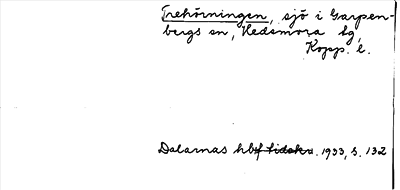 Trehörningen, sjö i Garpen-
bergs sn, Hedemora bg,
Kopp. l.
Dalarnas hbf tidskr. 1933, s. 132